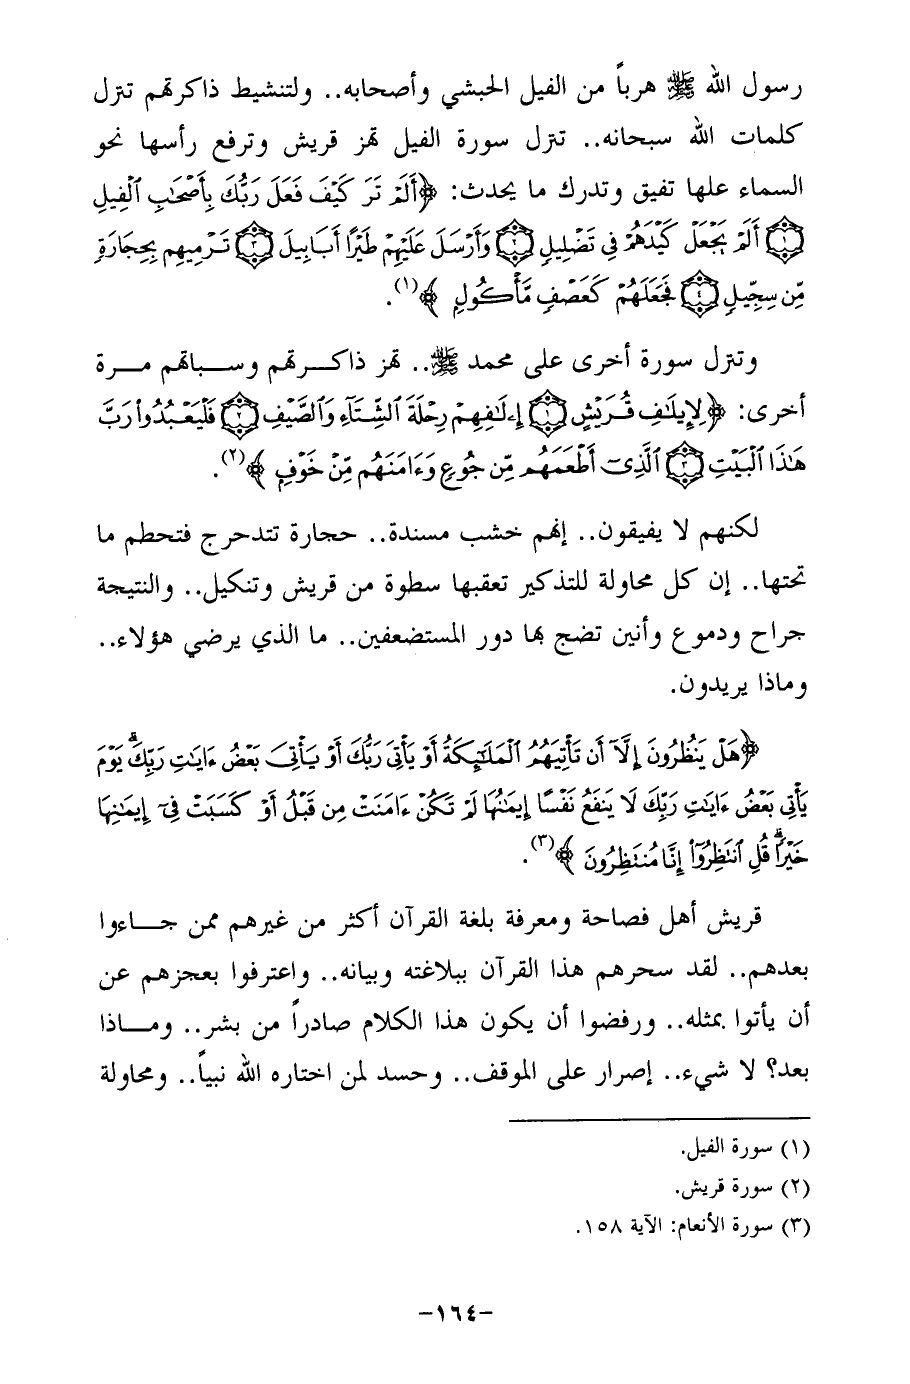 رسول الله ﷺ هرباً من الفيل الحبشي وأصحابه.. ولتنشيط ذاكرتهم تنزل
كلمات الله سبحانه.. تنزل سورة الفيل تهز قريش وترفع رأسها نحو
السماء علها تفيق وتدرك ما يحدث: ﴿أَلَمْ تَرَ كَيْفَ فَعَلَ رَبُّكَ بِأَصْحَٰبِ ٱلْفِيلِ
۝١ أَلَمْ يَجْعَلْ كَيْدَهُمْ فِى تَضْلِيلٍ ۝٢ وَأَرْسَلَ عَلَيْهِمْ طَيْرًا أَبَابِيلَ ۝٣ تَرْمِيهِم بِحِجَارَةٍ
مِّن سِجِّيلٍ ۝٤ فَجَعَلَهُمْ كَعَصْفٍ مَّأْكُولٍ﴾(١).
وتنزل سورة أخرى على محمد ﷺ.. تهز ذاكرتهم وسباتهم مرة
أخرى: ﴿لِإِيلَٰفِ قُرَيْشٍ ۝١ إِۦلَٰفِهِمْ رِحْلَةَ ٱلشِّتَآءِ وَٱلصَّيْفِ ۝٢ فَلْيَعْبُدُوا۟ رَبَّ
هَٰذَا ٱلْبَيْتِ ۝٣ ٱلَّذِىٓ أَطْعَمَهُم مِّن جُوعٍ وَءَامَنَهُم مِّنْ خَوْفٍ﴾(٢).
لكنهم لا يفيقون.. إنهم خشب مسندة.. حجارة تتدحرج فتحطم ما
تحتها.. إن كل محاولة للتذكير تعقبها سطوة من قريش وتنكيل.. والنتيجة
جراح ودموع وأنين تضج بها دور المستضعفين.. ما الذي يرضي هؤلاء..
وماذا يريدون.
﴿هَلْ يَنظُرُونَ إِلَّآ أَن تَأْتِيَهُمُ ٱلْمَلَٰٓئِكَةُ أَوْ يَأْتِىَ رَبُّكَ أَوْ يَأْتِىَ بَعْضُ ءَايَٰتِ رَبِّكَ ۗ يَوْمَ
يَأْتِى بَعْضُ ءَايَٰتِ رَبِّكَ لَا يَنفَعُ نَفْسًا إِيمَٰنُهَا لَمْ تَكُنْ ءَامَنَتْ مِن قَبْلُ أَوْ كَسَبَتْ فِىٓ إِيمَٰنِهَا
خَيْرًا ۗ قُلِ ٱنتَظِرُوٓا۟ إِنَّا مُنتَظِرُونَ﴾(٣).
قريش أهل فصاحة ومعرفة بلغة القرآن أكثر من غيرهم ممن جاءوا
بعدهم.. لقد سحرهم هذا القرآن ببلاغته وبيانه.. واعترفوا بعجزهم عن
أن يأتوا بمثله.. ورفضوا أن يكون هذا الكلام صادراً من بشر.. وماذا
بعد؟ لا شيء.. إصرار على الموقف.. وحسد لمن اختاره الله نبياً.. ومحاولة
(١) سورة الفيل.
(٢) سورة قريش.
(٣) سورة الأنعام: الآية ١٥٨.
-١٦٤-